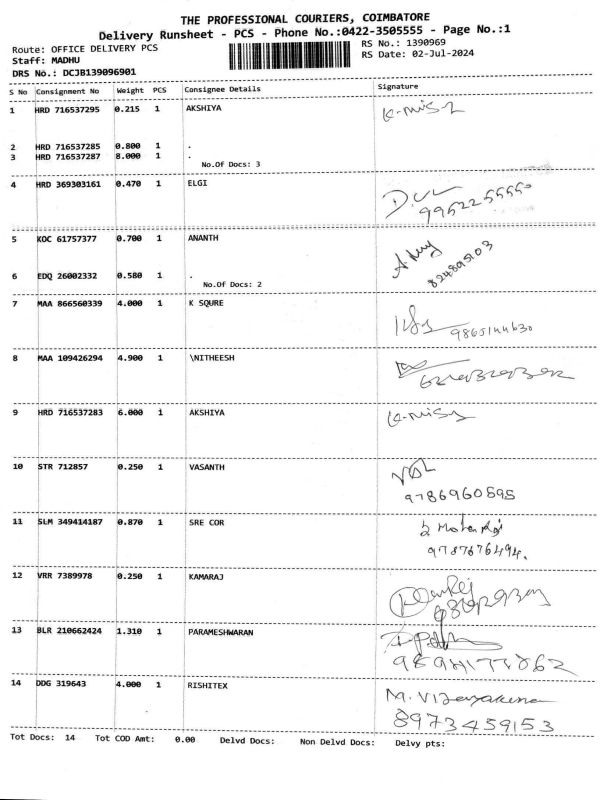 THE PROFESSIONAL COURIERS, COIMBATORE
Delivery Runsheet - PCS - Phone No.:0422-3505555 - Page No.:1
Route: OFFICE DELIVERY PCS
RS No.: 1390969
Staff: MADHU
RS Date: 02-Jul-2024
DRS No.: DCJB139096901
S No Consignment No Weight PCS Consignee Details Signature
1 HRD 716537295 0.215 1 AKSHIYA
2 HRD 716537285 0.800 1 .
3 HRD 716537287 8.000 1 .
No.Of Docs: 3
4 HRD 369303161 0.470 1 ELGI
5 KOC 61757377 0.700 1 ANANTH
6 EDQ 26002332 0.580 1 .
No.Of Docs: 2
7 MAA 866560339 4.000 1 K SQURE
9865144630
8 MAA 109426294 4.900 1 \NITHEESH
9 HRD 716537283 6.000 1 AKSHIYA
10 STR 712857 0.250 1 VASANTH
9786960595
11 SLM 349414187 0.870 1 SRE COR
9787676494.
12 VRR 7389978 0.250 1 KAMARAJ
13 BLR 210662424 1.310 1 PARAMESHWARAN
14 DDG 319643 4.000 1 RISHITEX
8973459153
Tot Docs: 14 Tot COD Amt: 0.00 Delvd Docs: Non Delvd Docs: Delvy pts: